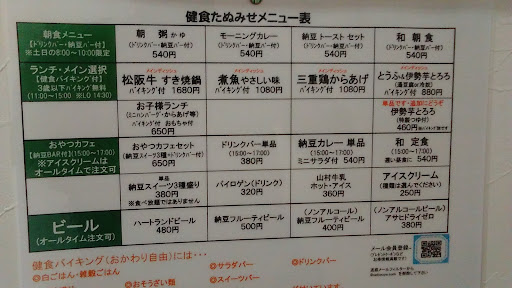 健食たぬみせメニュー表
朝食メニュー
【ドリンクバー・納豆バー付】
※土日の8:00~10:00限定
朝 粥 かゆ
【ドリンクバー・納豆バー付】
540円
モーニングカレー
【ドリンクバー・納豆バー付】
540円
納豆 トースト セット
【ドリンクバー・納豆バー付】
540円
和 朝食
【ドリンクバー・納豆バー付】
540円
ランチ・メイン選択
【健食バイキング付】
3歳以下バイキング無料
(11:00~15:00 ※LO 14:30)
メインディッシュ
松阪牛 すき焼鍋
バイキング付 1680円
メインディッシュ
煮魚やさしい味
バイキング付 1080円
メインディッシュ
三重鶏からあげ
バイキング付 1080円
メインディッシュ
とうふ&伊勢芋とろろ
バイキング付 880円
お子様ランチ
(ミニハンバーグ・からあげ等)
バイキング付 おもちゃ付
650円
単品です・追加にどうぞ
伊勢芋とろろ
460円
おやつカフェ
【納豆BAR付】(15:00~17:00)
※アイスクリームは
オールタイムで注文可
おやつカフェセット
(納豆スイーツ3種+ドリンクバー付)
650円
ドリンクバー単品
(15:00~17:00)
380円
納豆カレー 単品
(15:00~17:00)
ミニサラダ付 540円
和 定食
(15:00~17:00)
遅い昼食に 540円
単品
納豆スイーツ3種盛り
380円
※食べ放題ではありません
パイロゲン(ドリンク)
320円
山村牛乳
ホット・アイス
360円
アイスクリーム
(種類は選んでください)
250円
ビール
(オールタイム注文可)
ハートランドビール
480円
納豆フルーティビール
500円
(ノンアルコール)
納豆フルーティビール
400円
(ノンアルコールビール)
アサヒドライゼロ
380円
健食バイキング(おかわり自由)には・・・
◎白ごはん・雑穀ごはん
◎サラダバー
◎ドリンクバー
◎おそうざい類
◎スイーツバー
メール会員登録